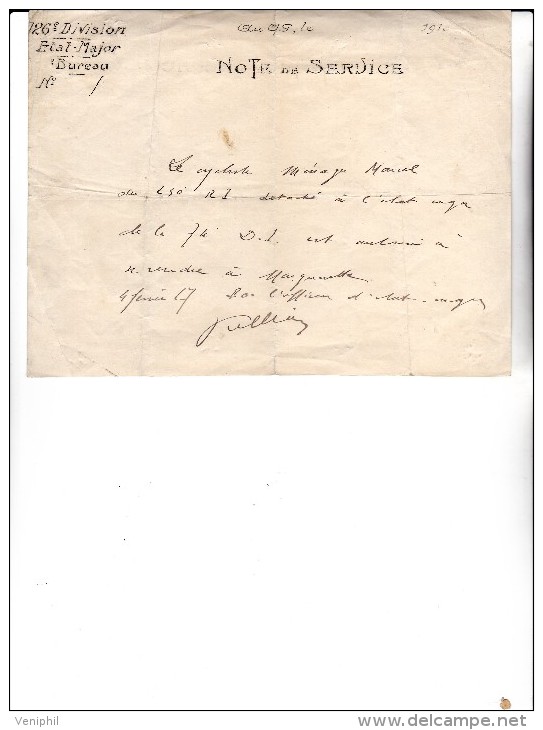 126e Division
Etat-Major
Bureau
No /
Au Q.G., le 191
NOTE DE SERVICE
Le cycliste Ménage Marcel
du 230e R I détaché à l'état major
de la 74e D.I. est autorisé à
se rendre à
4 février 17 P.o. l'officier d'état-major
Veniphil
www.delcampe.net